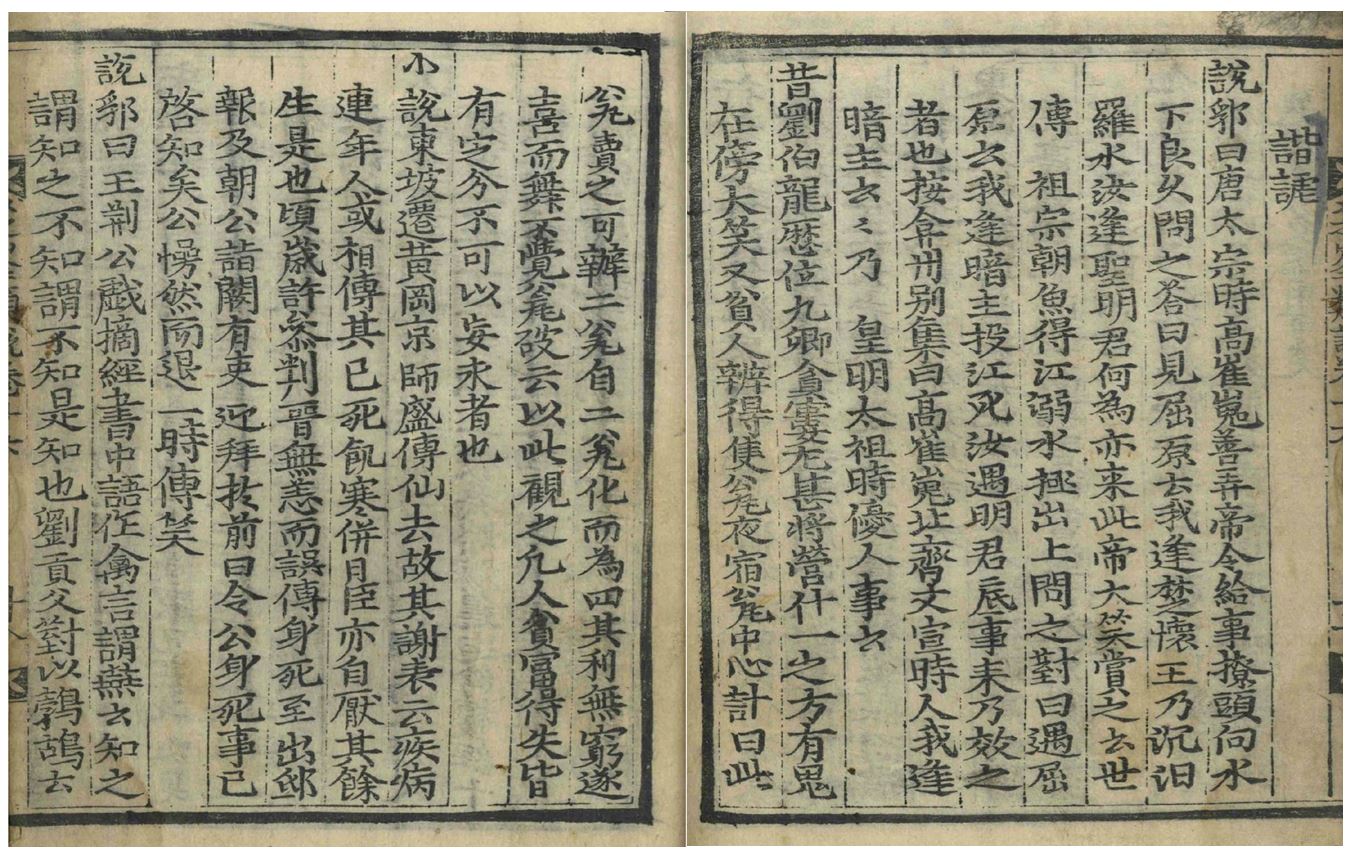 諧謔
說郛曰唐太宗時高崔嵬善弄帝令給事撩頭向水
下良久問之答曰見屈原云我逢楚懷王乃沉汨
羅水汝逢聖明君何為亦来此帝大笑賞之云世
傳　祖宗朝魚得江溺水極出上問之對曰遇屈
原云我逢暗主投江死汝遇明君底事来乃效之
者也按弇州别集曰高崔嵬北齊文宣時人我逢
暗主云〻乃　皇明太祖時優人事云
昔劉伯龍歷位九卿貧寠尤甚將營什一之方有鬼
在傍大笑又貧人辦得隻瓮夜宿瓮中心計曰此
瓮賣之可辦二瓮自二瓮化而為四其利無窮遂
喜而舞不覺瓮破云以此觀之凡人貧富得失皆
有定分不可以妄求者也
小說東坡遷黃岡京師盛傳仙去故其謝表云疾病
連年人或相傳其已死飢寒併日臣亦自厭其餘
生是也頃歲許叅判晉無恙而誤傳身死至出邸
報及朝公詣闕有吏迎拜扵前曰令公身死事已
啓知矣公愕然而退一時傳笑
說郛曰王荊公戱摘經書中語作禽言謂燕云知之
謂知之不知謂不知是知也劉貢父對以鷓鴣云